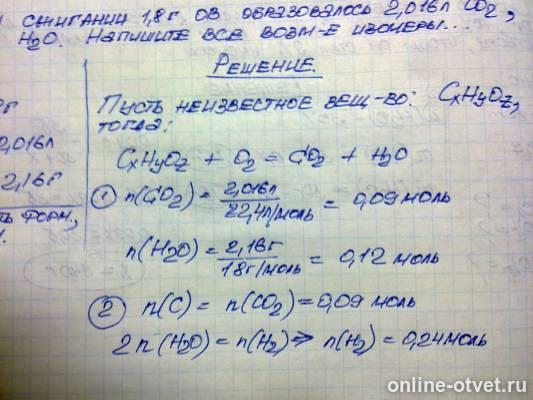 сжигании 1,8г ов образовалось 2,016л CO2,
H2O. Напишите все возм-е изомеры...
Решение.
Пусть неизвестное вещ-во: CxHyOz,
тогда:
CxHyOz + O2 = CO2 + H2O
① n(CO2) = 2,016л / 22,4л/моль = 0,09 моль
n(H2O) = 2,16г / 18г/моль = 0,12 моль
② n(C) = n(CO2) = 0,09 моль
2n(H2O) = n(H2) => n(H2) = 0,24 моль
2,016л
2,16г
форм,
online-otvet.ru